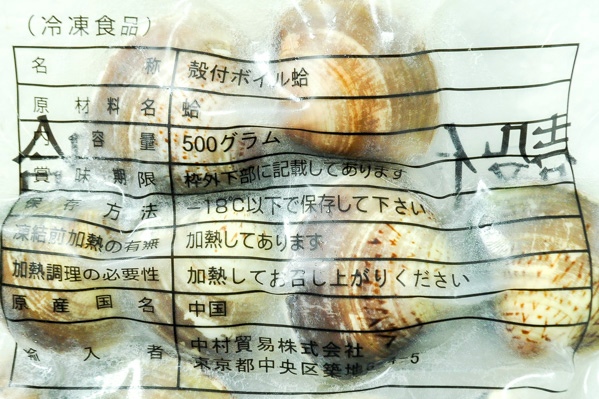 (冷凍食品)
名称 殻付ボイル蛤
原材料名 蛤
内容量 500グラム
賞味期限 枠外下部に記載してあります
保存方法 −18℃以下で保存して下さい
凍結前加熱の有無 加熱してあります
加熱調理の必要性 加熱してお召し上がりください
原産国名 中国
輸入者 中村貿易株式会社
東京都中央区築地